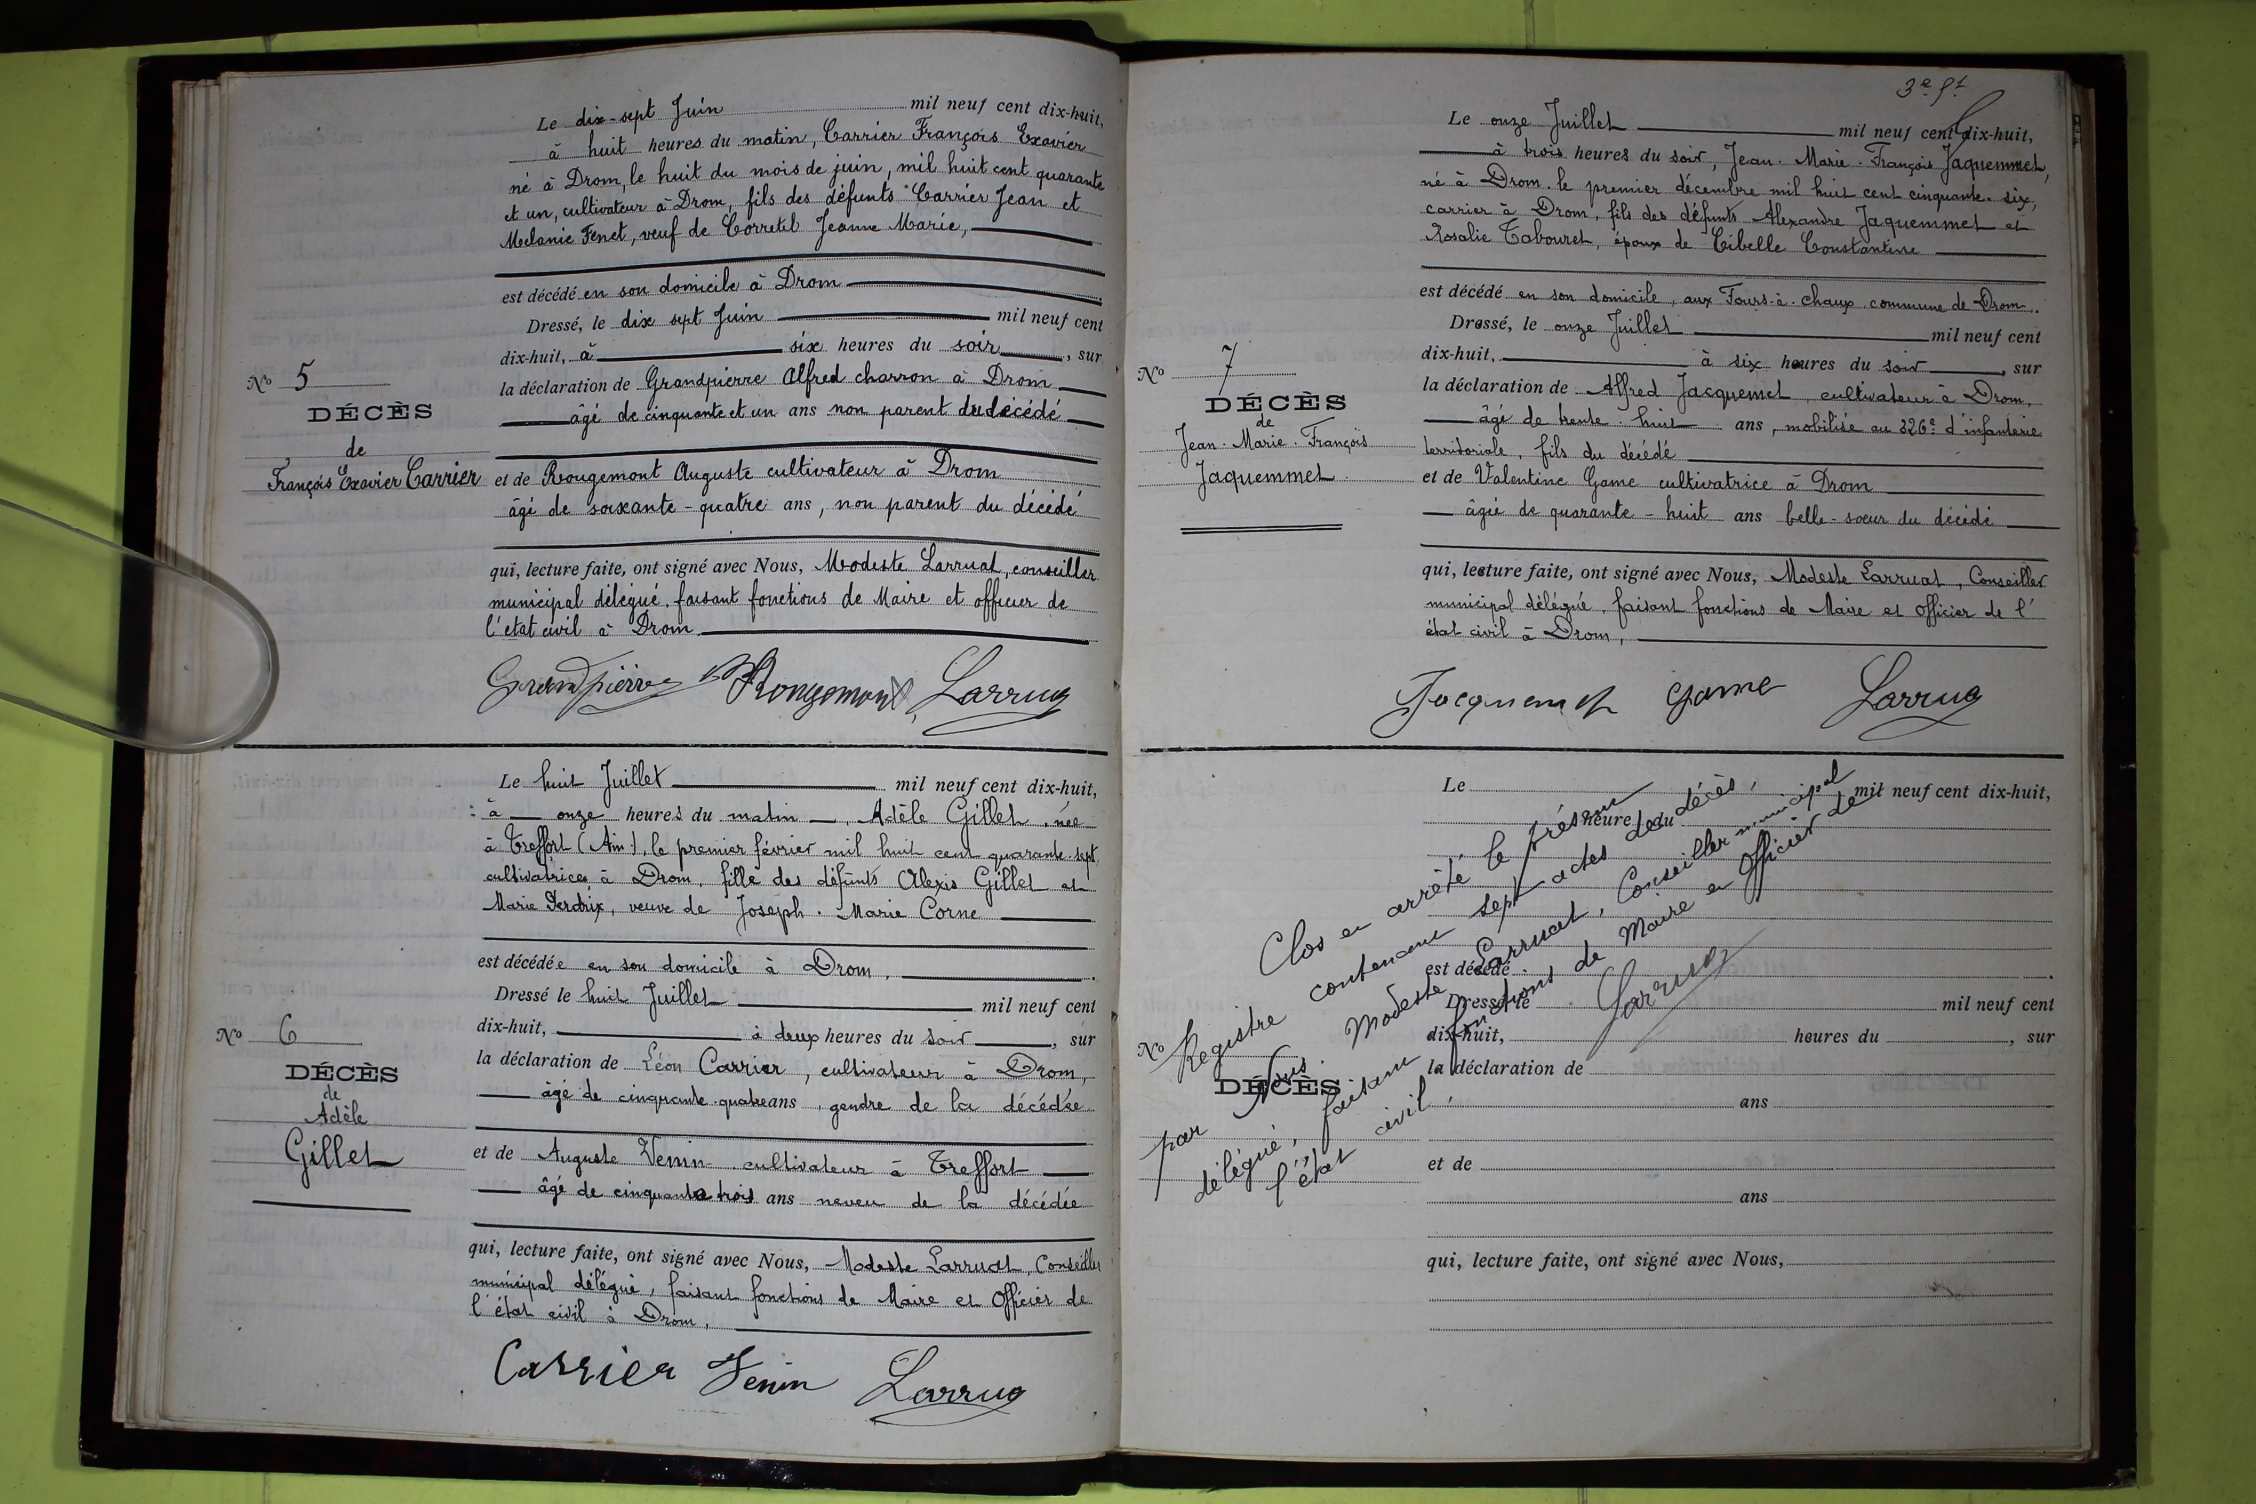 Le dix-sept Juin mil neuf cent dix-huit,
à huit heures du matin, Carrier François Exavier
né à Drom, le huit du mois de juin, mil huit cent quarante
et un, cultivateur à Drom, fils des défunts Carrier Jean et
Melanie Fenet, veuf de Corretel Jeanne Marie,
est décédé en son domicile à Drom
Dressé, le dix sept Juin mil neuf cent
dix-huit, à six heures du soir, sur
la déclaration de Grandpierre Alfred charron à Drom
âgé de cinquante et un ans non parent du décédé
et de Rougemont Auguste cultivateur à Drom
âgé de soixante-quatre ans, non parent du décédé
qui, lecture faite, ont signé avec Nous, Modeste Larruat, conseiller
municipal délégué, faisant fonctions de Maire et officier de
l'etat civil à Drom
No 5
DÉCÈS
de
François Exavier Carrier
Grandpierre Rougemont Larrua
Le huit Juillet mil neuf cent dix-huit,
à onze heures du matin, Adèle Gillet, née
à Treffort (Ain), le premier février mil huit cent quarante-sept
cultivatrice à Drom, fille des défunts Alexis Gillet et
Marie Perdrix, veuve de Joseph-Marie Corne
est décédée en son domicile à Drom.
Dressé le huit Juillet mil neuf cent
dix-huit, à deux heures du soir, sur
la déclaration de Léon Carrier, cultivateur à Drom,
âgé de cinquante-quatre ans, gendre de la décédée
et de Auguste Venin cultivateur à Treffort
âgé de cinquante trois ans neveu de la décédée
qui, lecture faite, ont signé avec Nous, Modeste Larruat, Conseiller
municipal délégué, faisant fonctions de Maire et Officier de
l'état civil à Drom.
No 6
DÉCÈS
de
Adèle
Gillet
Carrier Venin Larrua
3e ft
Le onze Juillet mil neuf cent dix-huit,
à trois heures du soir, Jean-Marie-François Jaquemmet,
né à Drom le premier décembre mil huit cent cinquante-six,
carrier à Drom, fils des défunts Alexandre Jaquemmet et
Rosalie Tabouret, époux de Cibelle Constantine
est décédé en son domicile, aux Fours-à-chaux commune de Drom.
Dressé, le onze Juillet mil neuf cent
dix-huit, à six heures du soir, sur
la déclaration de Alfred Jacquemet, cultivateur à Drom,
âgé de trente-huit ans, mobilisé au 326e d'infanterie
territoriale, fils du décédé
et de Valentine Game cultivatrice à Drom
âgée de quarante-huit ans belle-soeur du décédé
qui, lecture faite, ont signé avec Nous, Modeste Larruat, Conseiller
municipal délégué, faisant fonctions de Maire et Officier de l'
état civil à Drom,
No 7
DÉCÈS
de
Jean-Marie-François
Jaquemmet
Jacquemet Game Larrua
Clos et arrêté le présent
Registre contenant sept actes de décès,
par Nous Modeste Larruat, Conseiller municipal
délégué, faisant fonctions de Maire et Officier de
l'état civil.
Larrua
Le mil neuf cent dix-huit,
heure du
est décédé
Dressé le mil neuf cent
dix-huit, heures du , sur
la déclaration de
ans
et de
ans
qui, lecture faite, ont signé avec Nous,
No
DÉCÈS